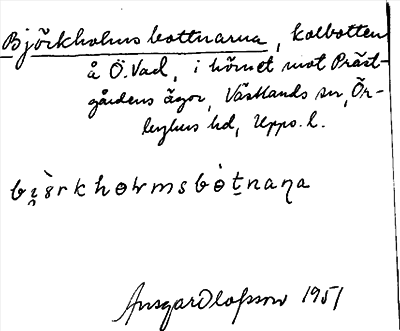 Björkholmsbottnarna, kolbotten
å Ö. Vad, i hörnet mot Präst-
gårdens ägor, Västlands sn, Ör-
byhus hd, Upps. l.
bi̯ò̈rkhɵɫmsbò̀tnaɳa
Ansgar Olofsson 1951